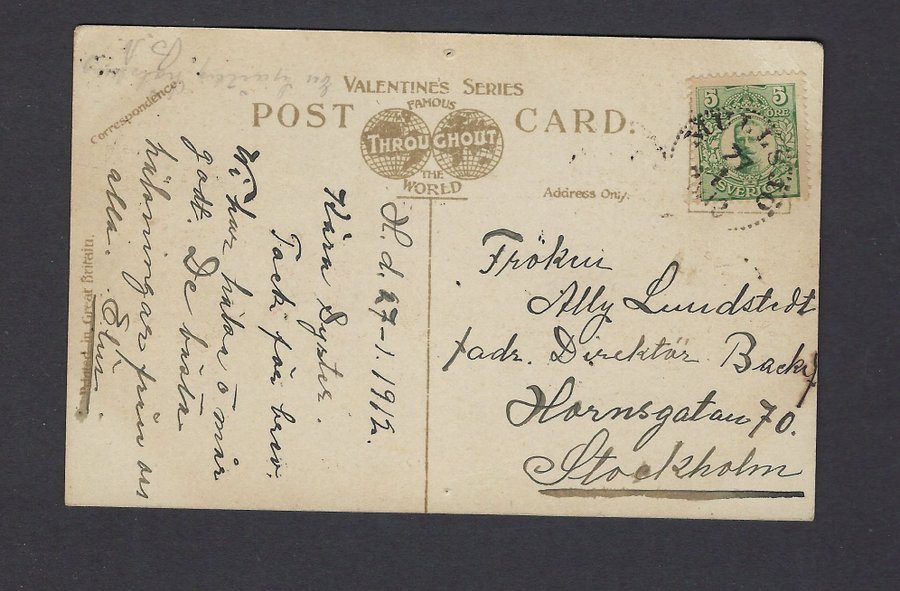 VALENTINE'S SERIES
POST CARD.
FAMOUS
THROUGHOUT
THE
WORLD
Correspondence.
Address Only.
Printed in Great Britain.
5 5
ÖRE
SVERIGE
H. d. 27-1. 1912.
Kära Syster.
Tack för brev.
Vi har hälsa o mår
godt. De bästa
hälsningar från oss
alla. Elin.
Fröken
Ally Lundstedt
adr. Direktör Back
Hornsgatan 70.
Stockholm